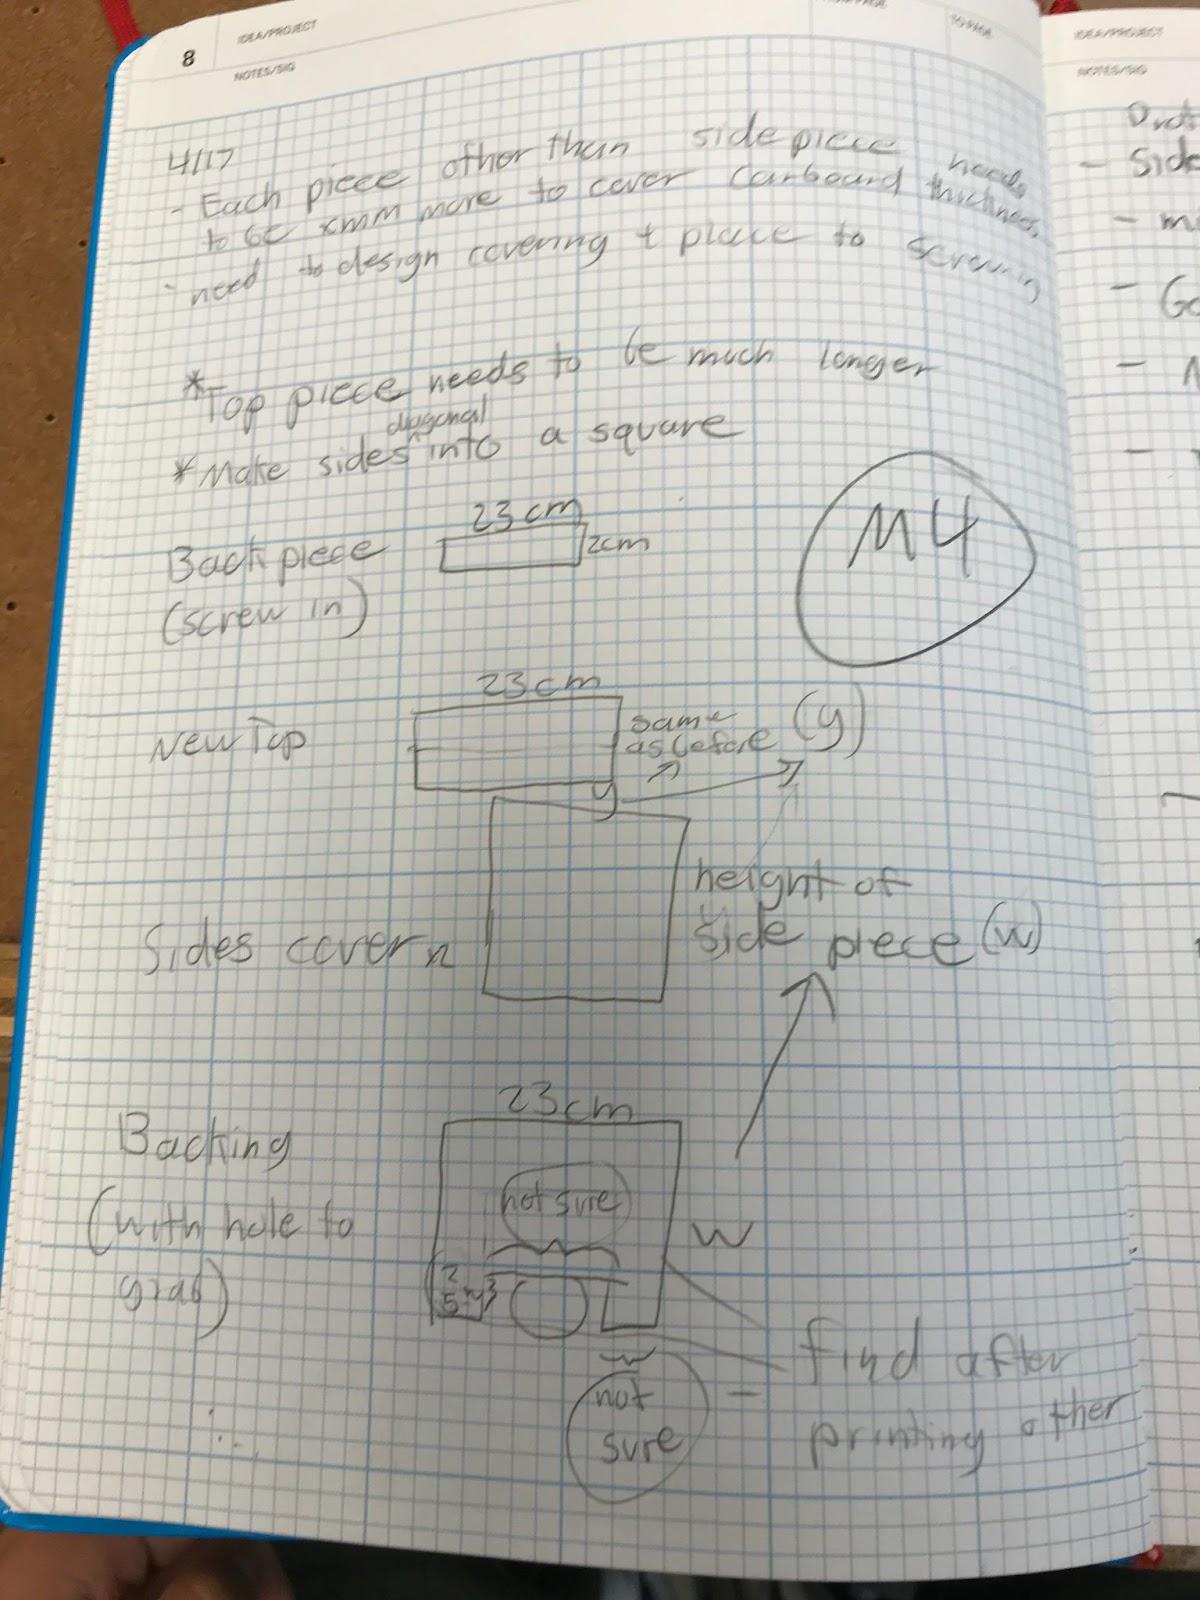 8
IDEA/PROJECT
NOTES/SIG
TO PAGE
4/17
- Each piece other than side piece needs
to be xmm more to cover carboard thickness.
- need to design covering + place to screw in
*Top piece needs to be much longer
diagonal
*Make sides ^ into a square
23cm
Back piece
2cm
(screw in)
M4
23cm
New Top
same
as before (y)
y
height of
Sides cover
side piece (w)
23cm
Backing
(with hole to
grab)
not sure
w
find after
not
sure
printing other
IDEA/PROJECT
NOTES/SIG
- Side